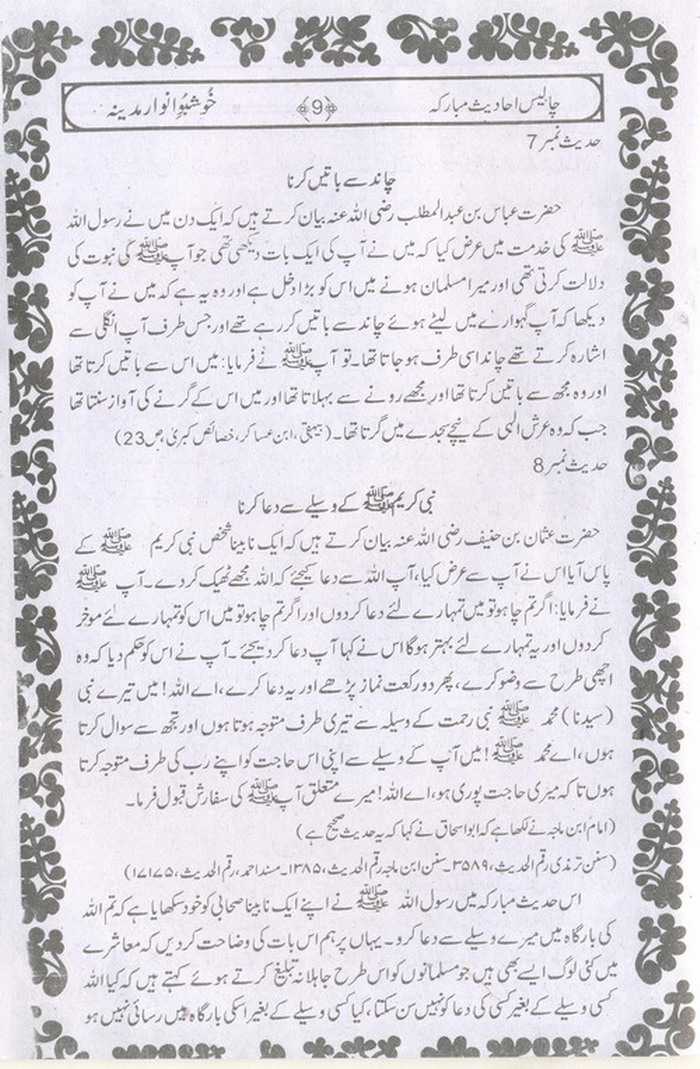 چالیس احادیث مبارکہ ﴿9﴾ خُوشبُؤِ انوارِ مدینہ
حدیث نمبر 7
چاند سے باتیں کرنا
حضرت عباس بن عبدالمطلب رضی اللہ عنہ بیان کرتے ہیں کہ ایک دن میں نے رسول اللہ
ﷺ کی خدمت میں عرض کیا کہ میں نے آپ کی ایک بات دیکھی تھی جو آپ ﷺ کی نبوت کی
دلالت کرتی تھی اور میرا مسلمان ہونے میں اس کو بڑا دخل ہے اور وہ یہ ہے کہ میں نے آپ کو
دیکھا کہ آپ گہوارے میں لیٹے ہوئے چاند سے باتیں کر رہے تھے اور جس طرف آپ انگلی سے
اشارہ کرتے تھے چاند اسی طرف ہو جاتا تھا۔ تو آپ ﷺ نے فرمایا: میں اس سے باتیں کرتا تھا
اور وہ مجھ سے باتیں کرتا تھا اور مجھے رونے سے بہلاتا تھا اور میں اس کے گرنے کی آواز سنتا تھا
جب کہ وہ عرش الٰہی کے نیچے سجدے میں گرتا تھا۔ (بیہقی، ابن عساکر، خصائص کبریٰ، ص 23)
حدیث نمبر 8
نبی کریم ﷺ کے وسیلے سے دعا کرنا
حضرت عثمان بن حنیف رضی اللہ عنہ بیان کرتے ہیں کہ ایک نابینا شخص نبی کریم ﷺ کے
پاس آیا اس نے آپ سے عرض کیا، آپ اللہ سے دعا کیجئے کہ اللہ مجھے ٹھیک کر دے۔ آپ ﷺ
نے فرمایا: اگر تم چاہو تو میں تمہارے لئے دعا کر دوں اور اگر تم چاہو تو میں اس کو تمہارے لئے موخر
کر دوں اور یہ تمہارے لئے بہتر ہوگا اس نے کہا آپ دعا کر دیجئے۔ آپ نے اس کو حکم دیا کہ وہ
اچھی طرح سے وضو کرے، پھر دو رکعت نماز پڑھے اور یہ دعا کرے، اے اللہ! میں تیرے نبی
(سیدنا) محمد ﷺ نبی رحمت کے وسیلہ سے تیری طرف متوجہ ہوتا ہوں اور تجھ سے سوال کرتا
ہوں، اے محمد ﷺ! میں آپ کے وسیلے سے اپنی اس حاجت کو اپنے رب کی طرف متوجہ کرتا
ہوں تا کہ میری حاجت پوری ہو، اے اللہ! میرے متعلق آپ ﷺ کی سفارش قبول فرما۔
(امام ابن ماجہ نے لکھا ہے کہ ابو اسحاق نے کہا کہ یہ حدیث صحیح ہے)
(سنن ترمذی رقم الحدیث، ۳۵۸۹۔ سنن ابن ماجہ رقم الحدیث، ۱۳۸۵۔ مسند احمد، رقم الحدیث، ۱۷۱۷۵)
اس حدیث مبارکہ میں رسول اللہ ﷺ نے اپنے ایک نابینا صحابی کو خود سکھایا ہے کہ تم اللہ
کی بارگاہ میں میرے وسیلے سے دعا کرو۔ یہاں پر ہم اس بات کی وضاحت کر دیں کہ معاشرے
میں کئی لوگ ایسے بھی ہیں جو مسلمانوں کو اس طرح جاہلانہ تبلیغ کرتے ہوئے کہتے ہیں کہ کیا اللہ
کسی وسیلے کے بغیر کسی کی دعا کو نہیں سن سکتا، کیا کسی وسیلے کے بغیر اسکی بارگاہ میں رسائی نہیں ہو